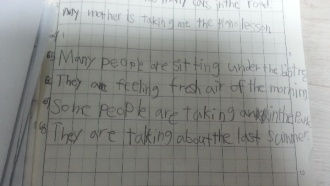 many cars in the road.
My mother is taking me the piano lesson
Many people are sitting under the
They are feeling fresh air of the morning
Some people are taking in the
They are talking about the last summer.